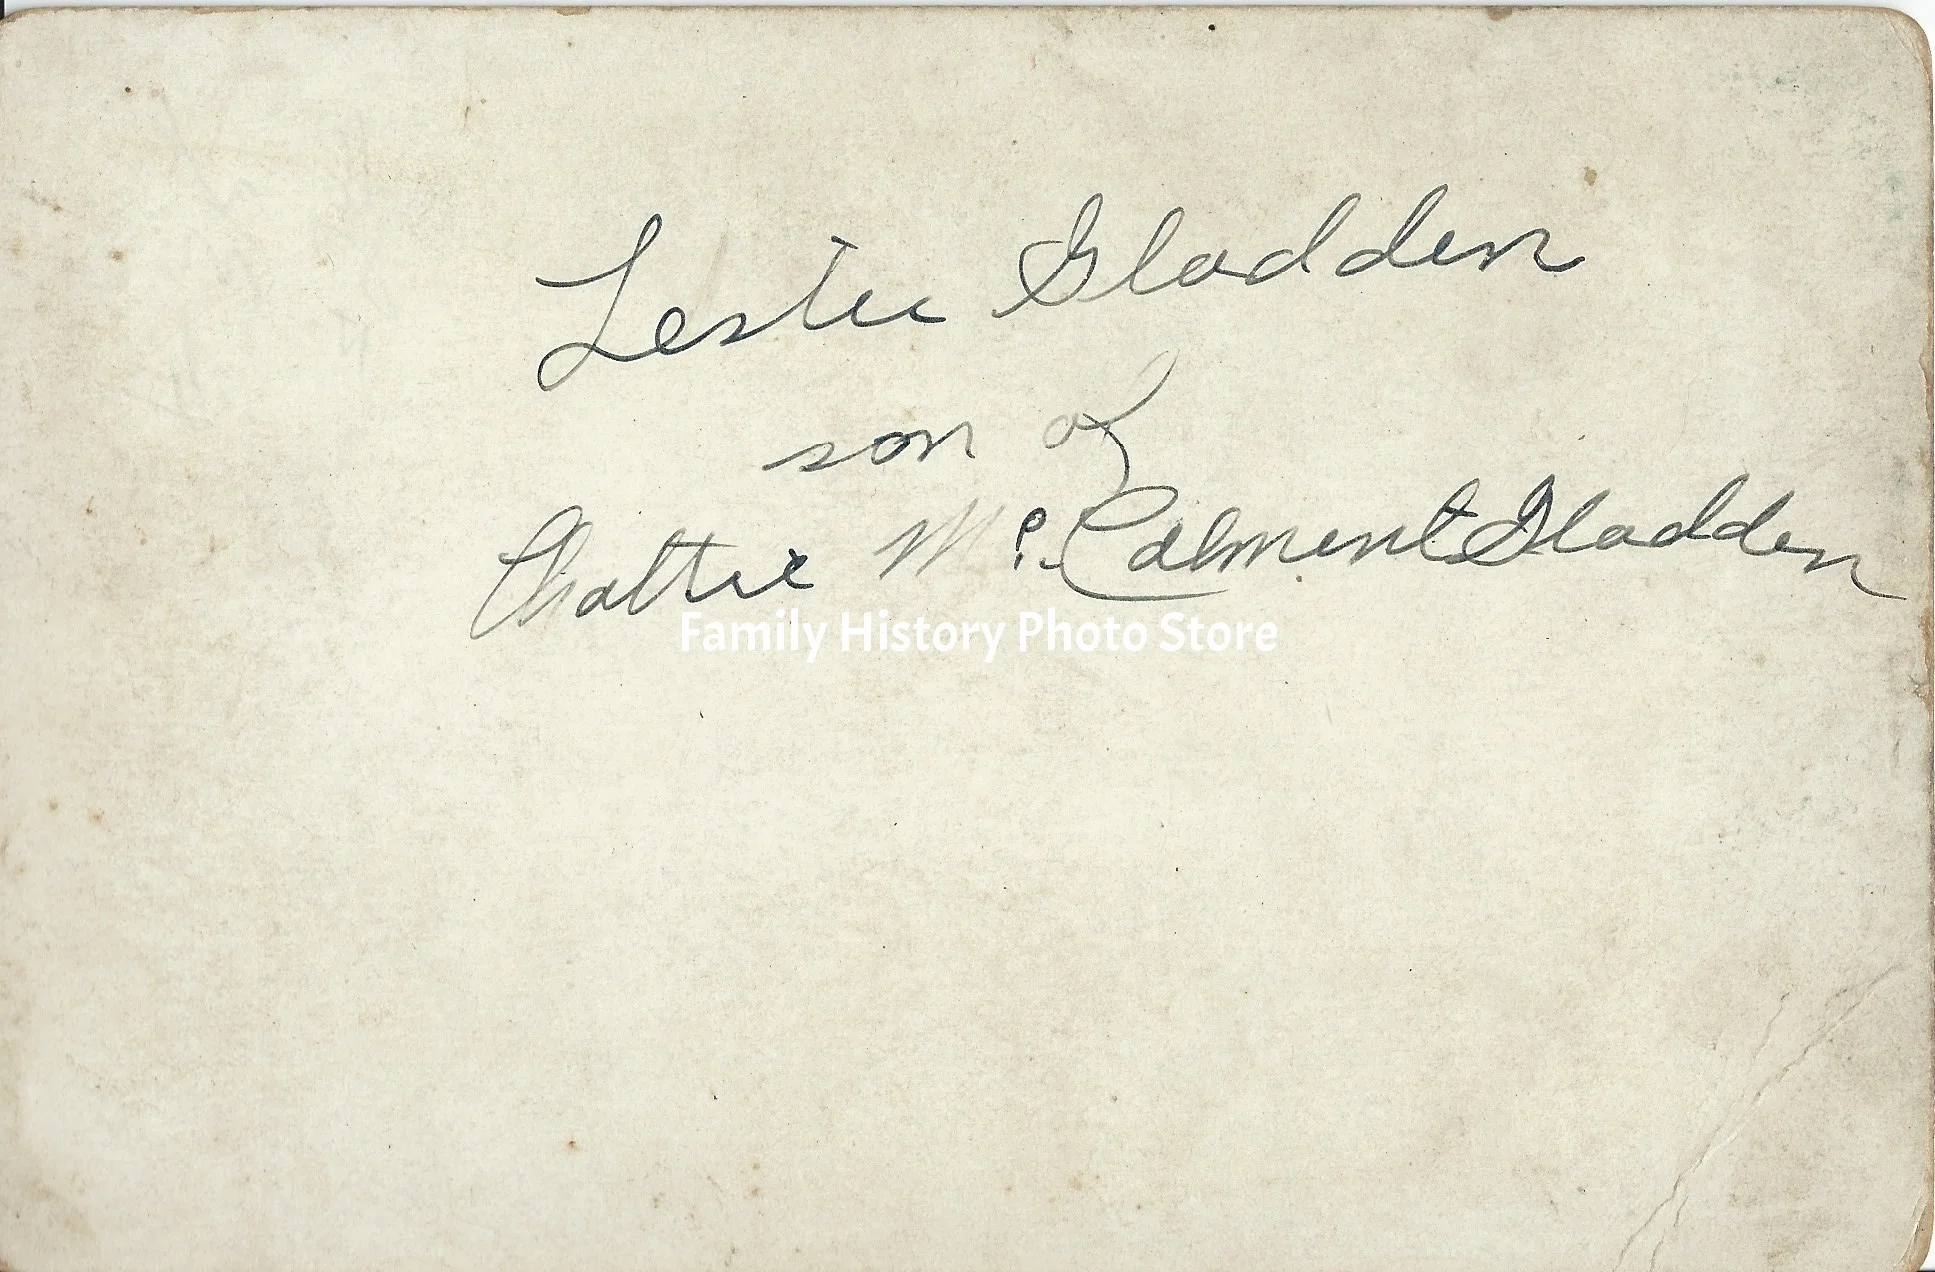 Leslie Gladden
son of
Chattie Mc Calment Gladden
Family History Photo Store